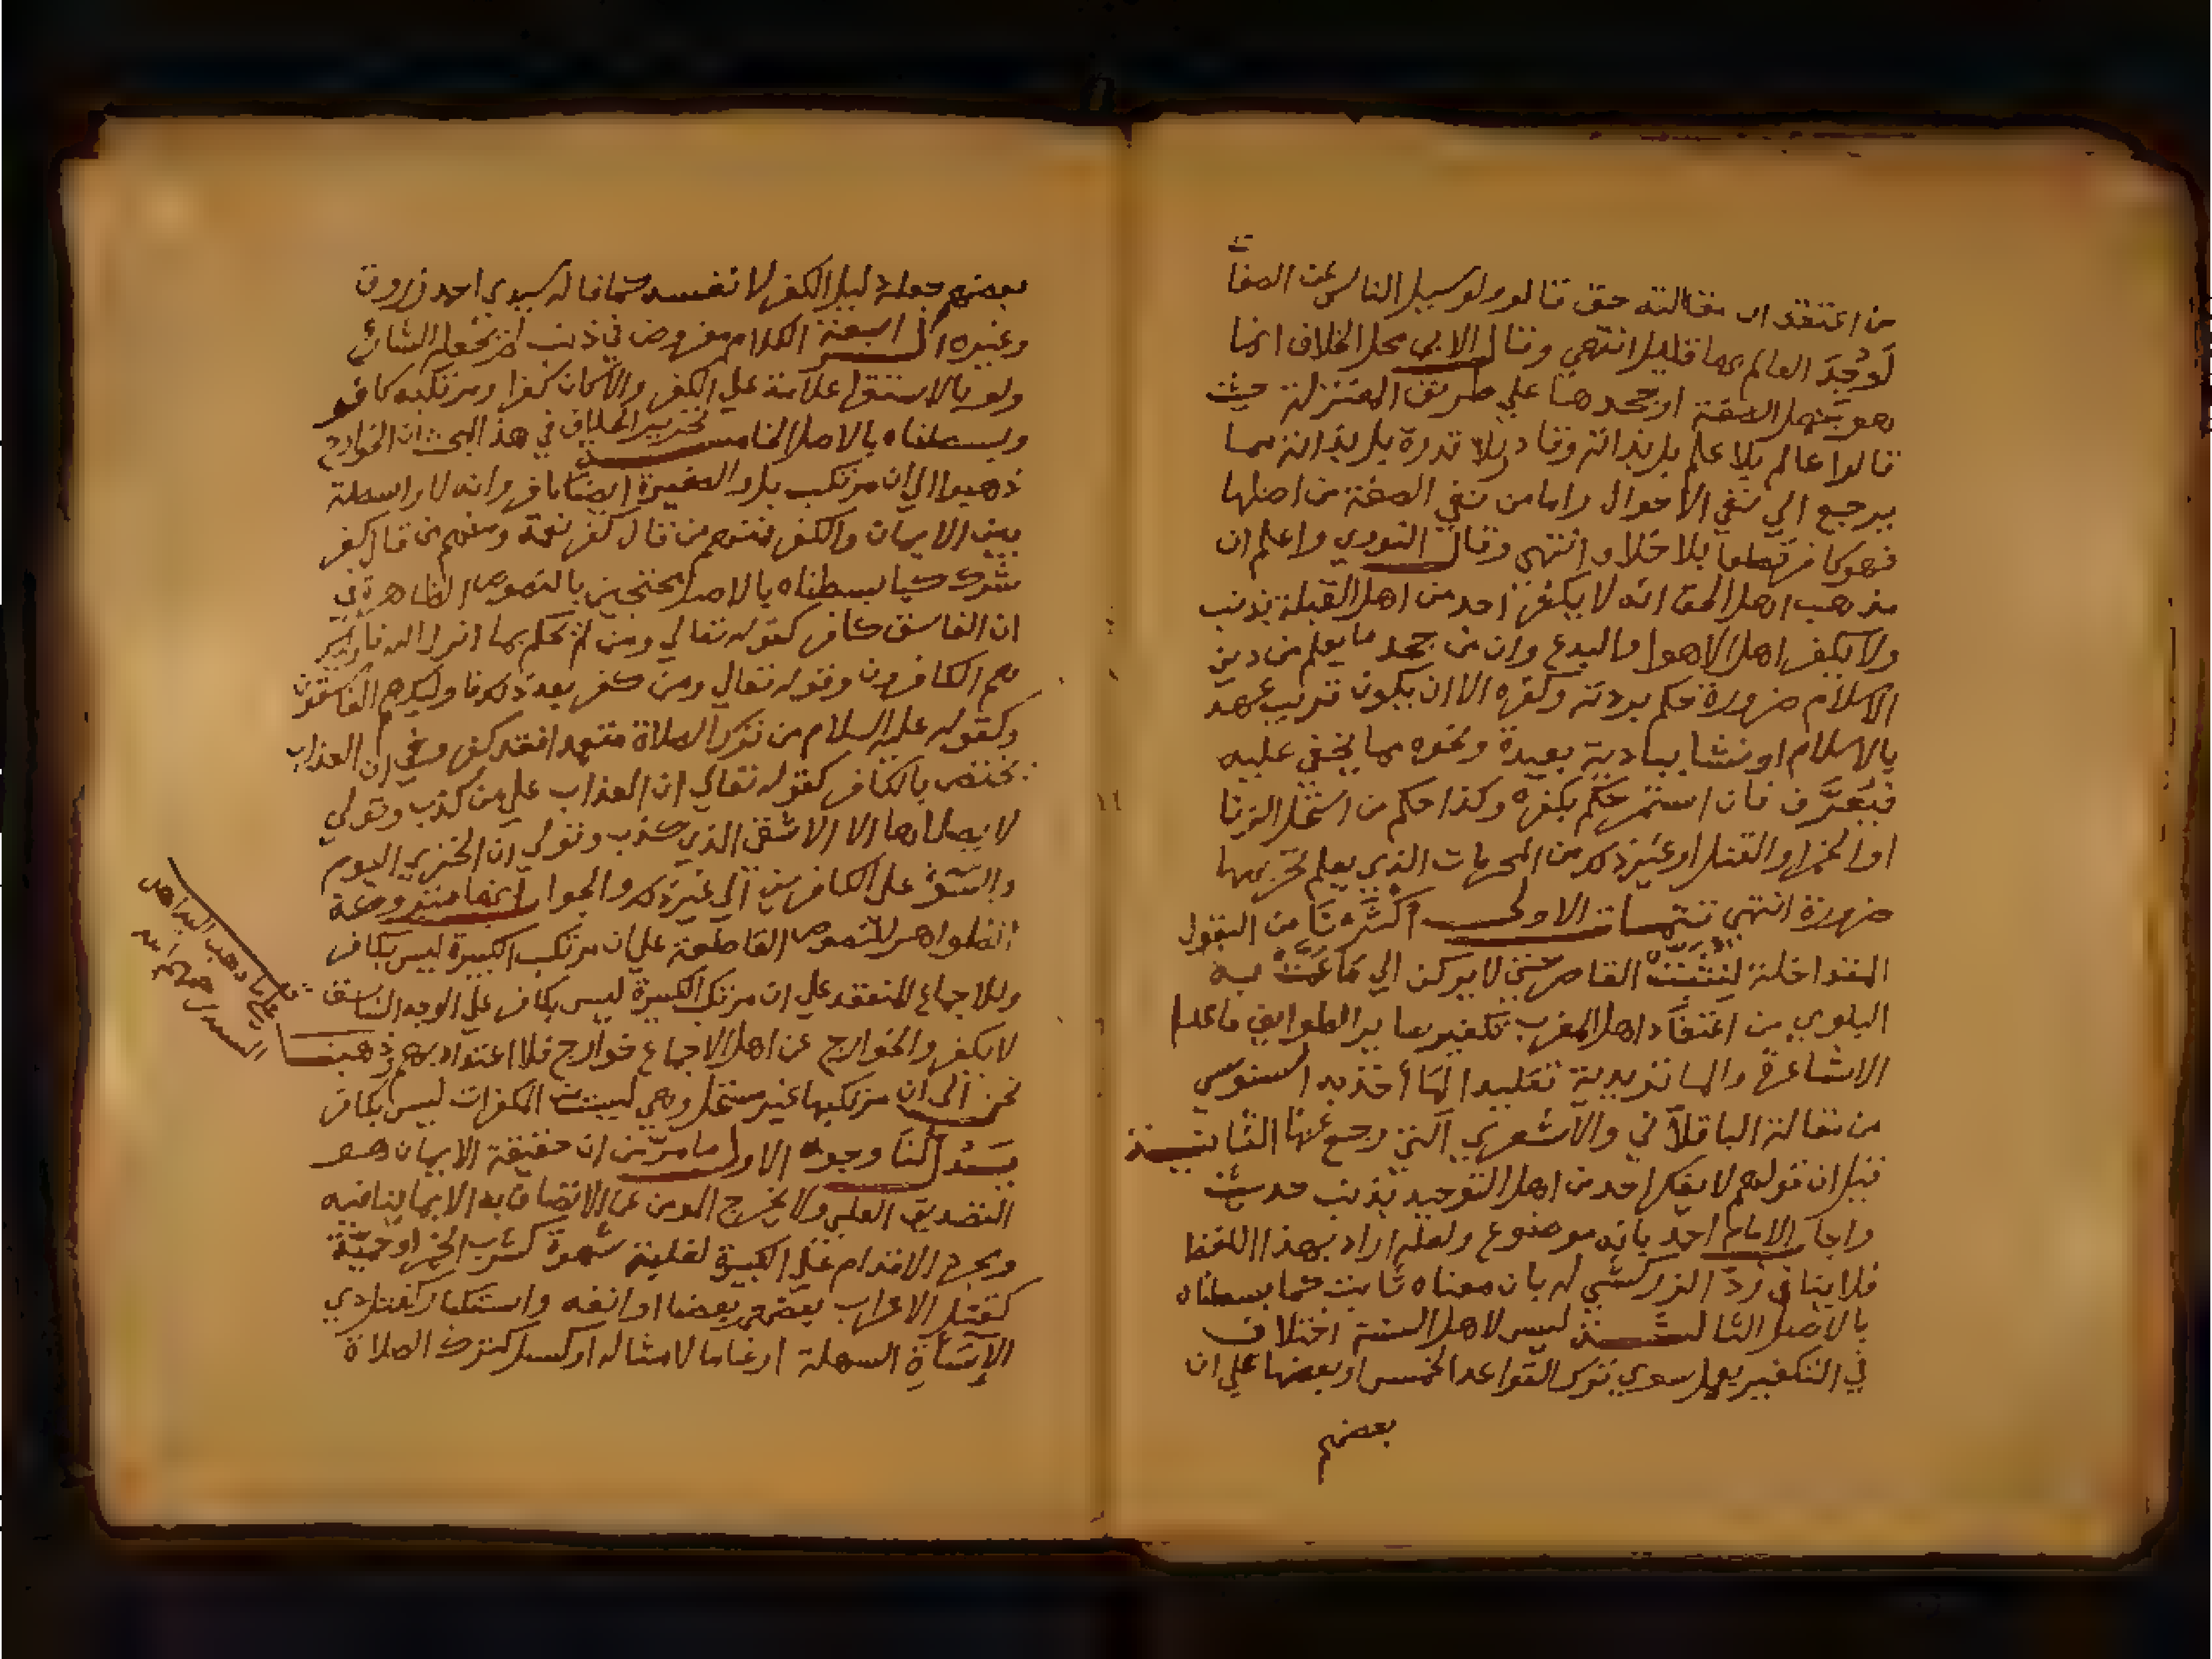 من اعتقد ان مقالته حق قالو ولو سيل الناس عن الصفات
لَوُجِدَ العالم بها قليل انتهى وقال الابي محل الخلاف انما
هو بجهل الصفة او جحدها علي طريق المعتزلة حيث
قالوا عالم بلا علم بل بذاته وقادر بلا قدرة بل بذاته مما
يرجع الي نفي الاحوال واما من نفي الصفة من اصلها
فهو كافر قطعا بلا خلاف انتهى وقال النووي واعلم ان
مذهب اهل الحق انه لا يكفر احد من اهل القبلة بذنب
ولا يكفر اهل الاهوا والبدع وان من جحد ما يعلم من دين
الاسلام ضرورة حكم بردته وكفره الا ان يكون قريب عهد
بالاسلام او نشا ببادية بعيدة ونحوه مما يخفي عليه
فيُعرَّف فان استمر حكم بكفره وكذا حكم من استحل الزنا
او الخمر او القتل او غير ذلك من المحرمات الذي يعلم تحريمها
ضرورة انتهي تتمات الاولى اكثرنا من النقول
المتداخلة القاصر حتى لا يركن الي ما عمت به
البلوي من اعتقاد اهل المغرب تكفير ساير الطوايف ما عدا
الاشاعرة والماتريدية تقليدا لما أخذ به السنوسي
من مقالة الباقلاني والاشعري التي رجع عنها الثانية
قيل ان قولهم لا يفكر احد من اهل التوحيد بذنب حديث
واجاب الامام احمد بانه موضوع ولعله اراد بهذا اللفظ
فلا ينافي ردّ الزركشي له بان معناه ثابت كما بسطناه
بالاصل الثالثة ليس لاهل السنة اختلاف
في التكفير بعمل سوي ترك القواعد الخمس او بعضها علي ان
بعضهم
بعضهم جعله دليل الكفر لا نفسه كما قاله سيدي احمد زروق
وغيره الرابعة الكلام مفروض في ذنب لم يجعله الشارع
ولو بالاستقرا علامة علي الكفر والا كان كفرا ومرتكبه كافر
وبسطناه بالاصل الخامسة تحرير الخلاف في هذ البحث ان الخوارج
ذهبوا الي ان مرتكب بل والصغيرة ايضا كافر وانه لا واسطة
بين الايمان والكفر فمنهم من قال كفر نعمة ومنهم من قال كفر
شرك كما بسطناه بالاصل محتجين بالنصوص الظاهرة في
ان الفاسق كافر كقوله تعالي ومن لم يحكم بما انزل الله فأوليك
هم الكافرون وقوله تعالي ومن كفر بعد ذلك فاوليك هم الفاسقون
وكقوله عليه السلام من ترك الصلاة متعمدا فقد كفر وفي ان العذاب
مختص بالكافر كقوله تعالي ان العذاب علي من كذب وتولي
لا يصلاها الا الاشقى الذي كذب وتولي ان الخزي اليوم
والسوء على الكافرين الي غير ذلك والجواب انها متروكة
الظواهر للنصوص القاطعة علي ان مرتكب الكبيرة ليس بكافر
وللاجماع المنعقد علي ان مرتكب الكبيرة ليس بكافر علي الوجه السابق
لا يكفر والخوارج عن اهل الاجماع خوارج فلا اعتداد بهم وذهبنا
نحن الى ان مرتكبها غير مستحل وهي ليست المكفرات ليس بكافر
لنا وجوه الاول ما مر من ان حقيقة الايمان هو
التصديق القلبي ولا يخرج المومن عن الاتصاف به الا بما ينافيه
ومجرد الاقدام علي الكبيرة لغلبة شهوة كشرب الخمر او حميّة
كقتل الاعراب بعضهم بعضا او انفة واستكبار كقتل ذي
الإسَأةِ السهلة ارغاما لامثاله او كسل كترك الصلاة